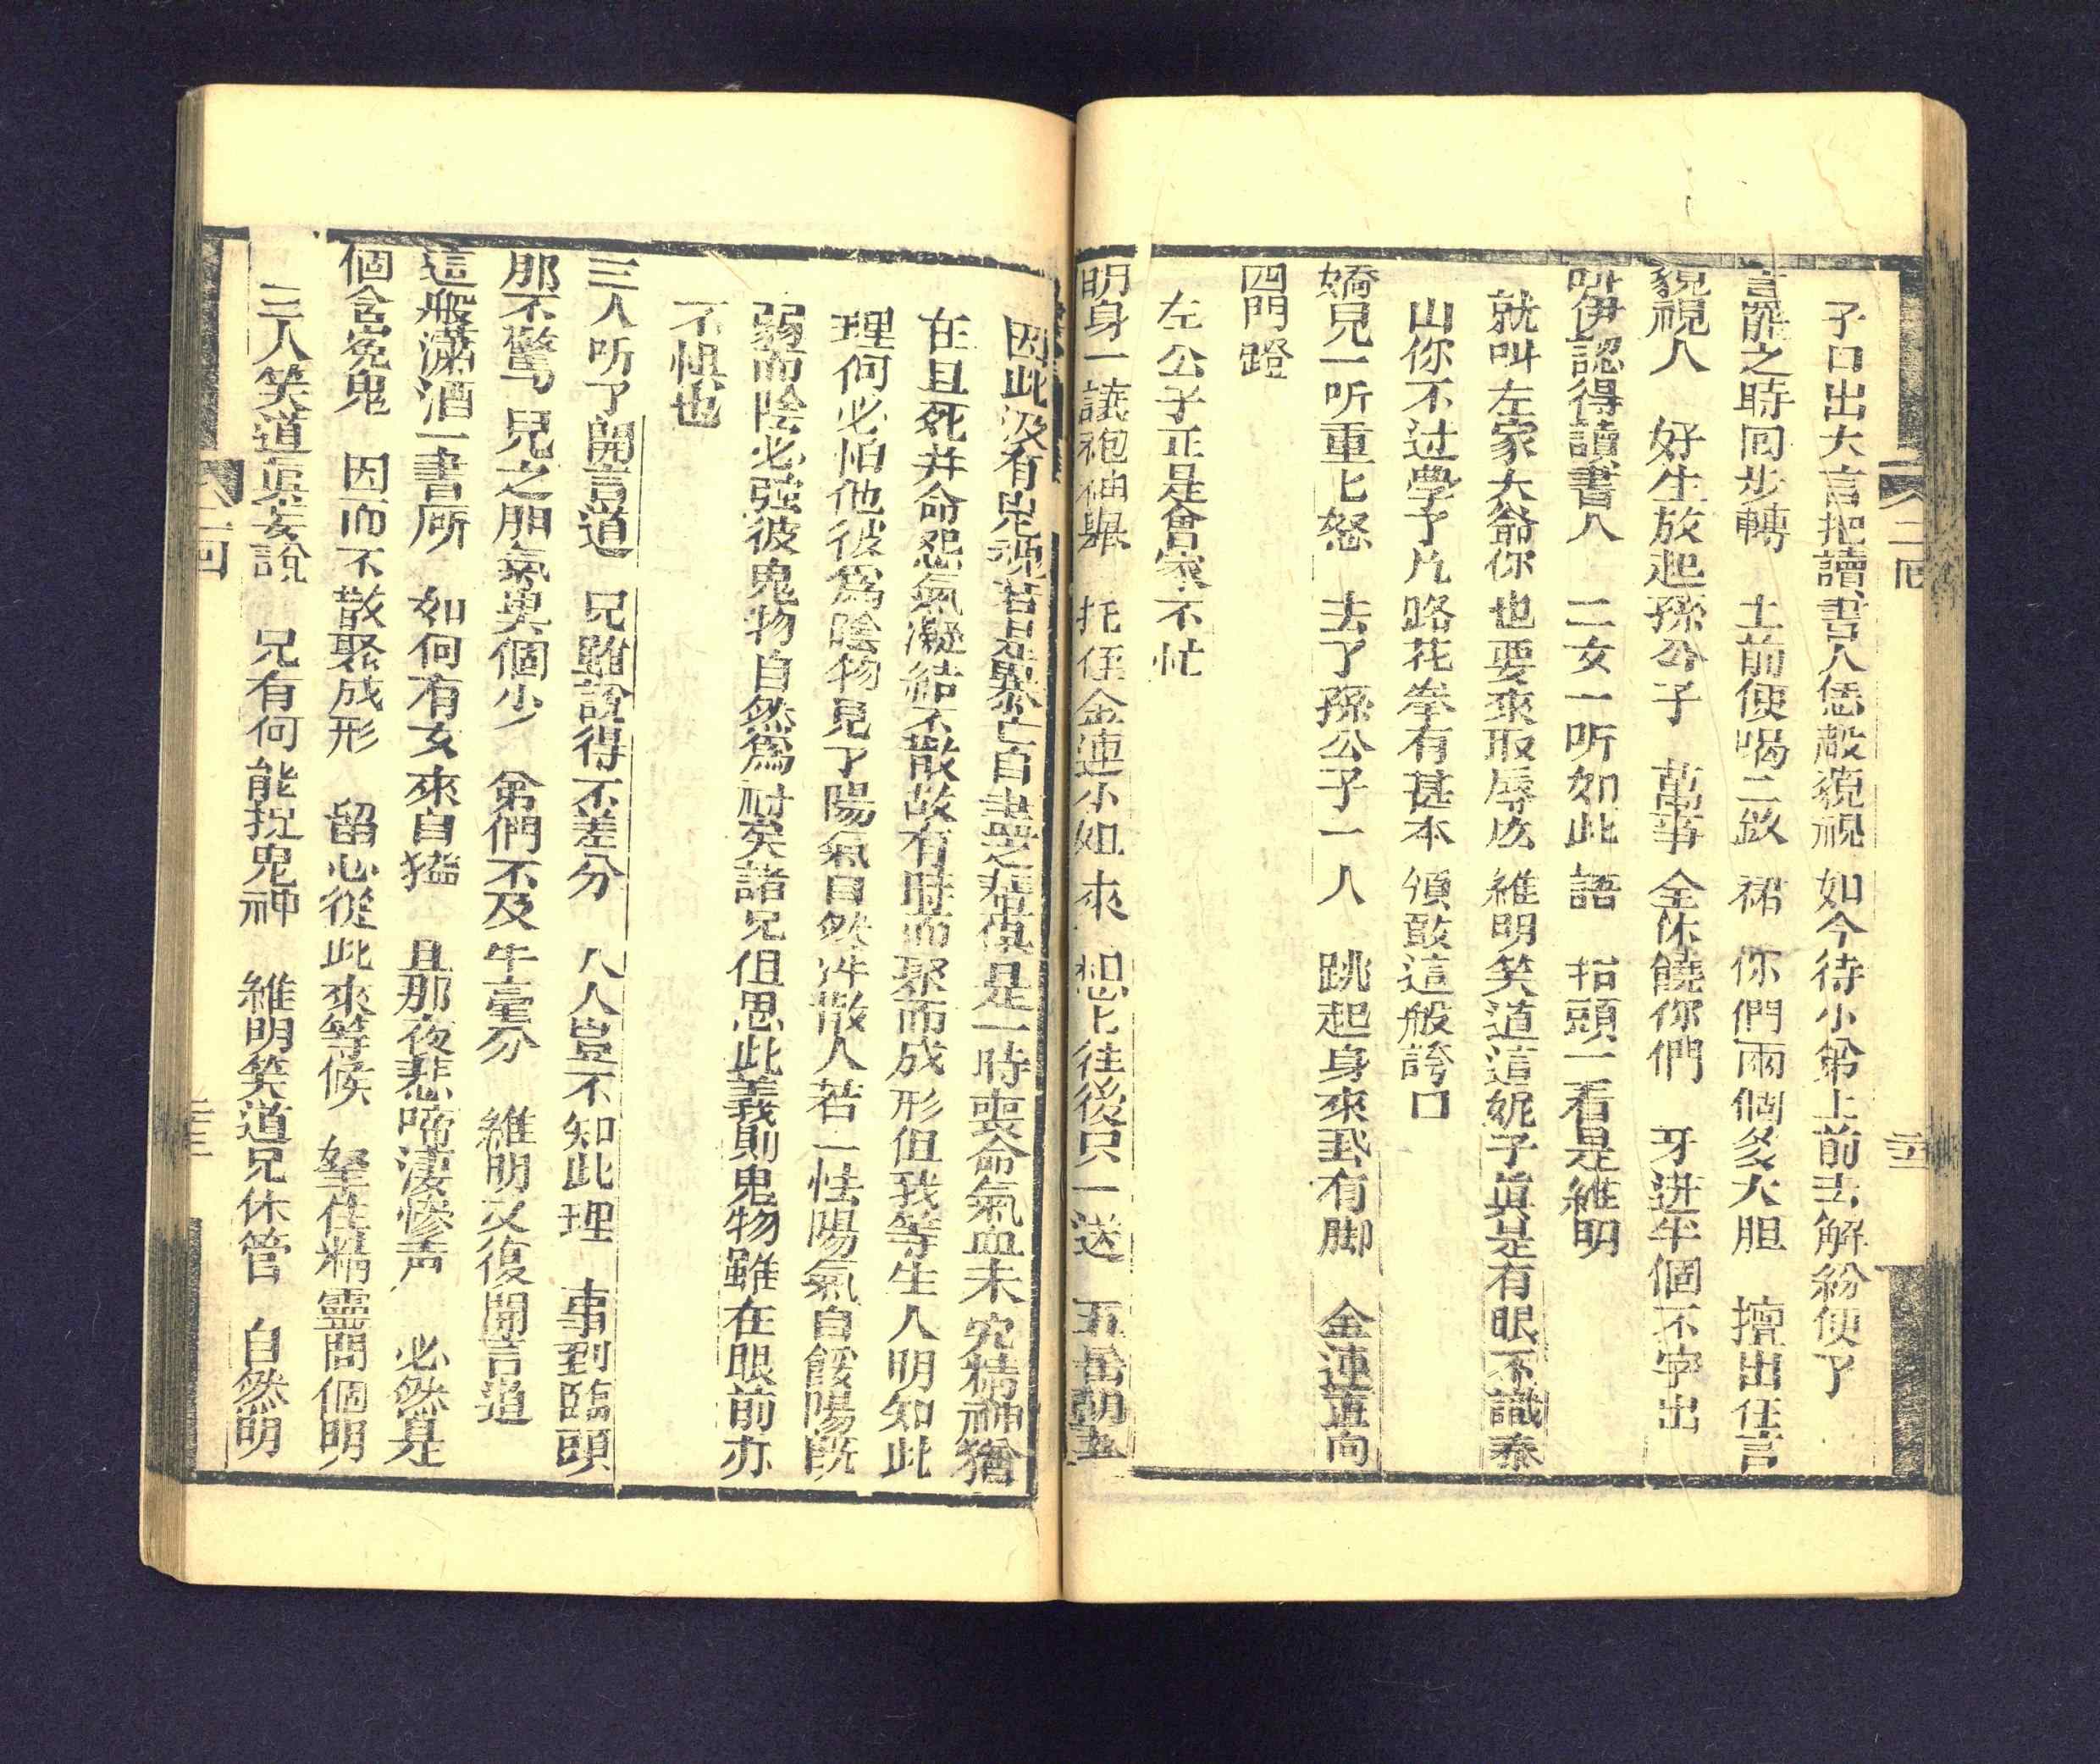 二回
子口出大言把讀書人恁般藐視 如今待小弟上前去解紛便了
言罷之時同步轉 上前便喝二 裙 你們兩個多大胆 擅出狂言
藐視人 好生放起孫公子 萬事全休饒你們 牙迸半個不字出
叫伊認得讀書人 二女一听如此語 抬頭一看是維明
就叫左家大爺你也要來取辱庅 維明笑道這妮子眞是有眼不識泰
山你不过學了几路花拳有甚本領敢這般誇口
嬌兒一听重匕怒 去了孫公子一人 跳起身來 有脚 金連直向
四門蹬
左公子正是會家不忙
明身一讓袍袖舉 托住金連小如來 想匕往後只一送 五岳朝
因此没有鬼魂若是暴亡自盡 之 眞是一時喪命氣血未究精神猶
在且死并命怨氣凝結不散故有時而聚而成形但我等生人明知此
理何必怕他彼爲陰物見了陽氣自然 散人若一怯陽氣自餒陽旣
弱而陰必强彼鬼物自然爲祟矣諸兄但思此義則鬼物雖在眼前亦
不怛也
三人听了開言道 兄雖說得不差分 人人豈不知此理 事到臨頭
那不驚 兄之胆氣眞個少 弟們不及半毫分 維明又復開言道
這般瀟洒一書房 如何有女來自縊 且那夜悲啼凄慘声 必然是
個含寃鬼 因而不散聚成形 留心從此來等候 拏住精靈問個明
三人笑道眞妄說 兄有何能捉鬼神 維明笑道兄休管 自然明
二回